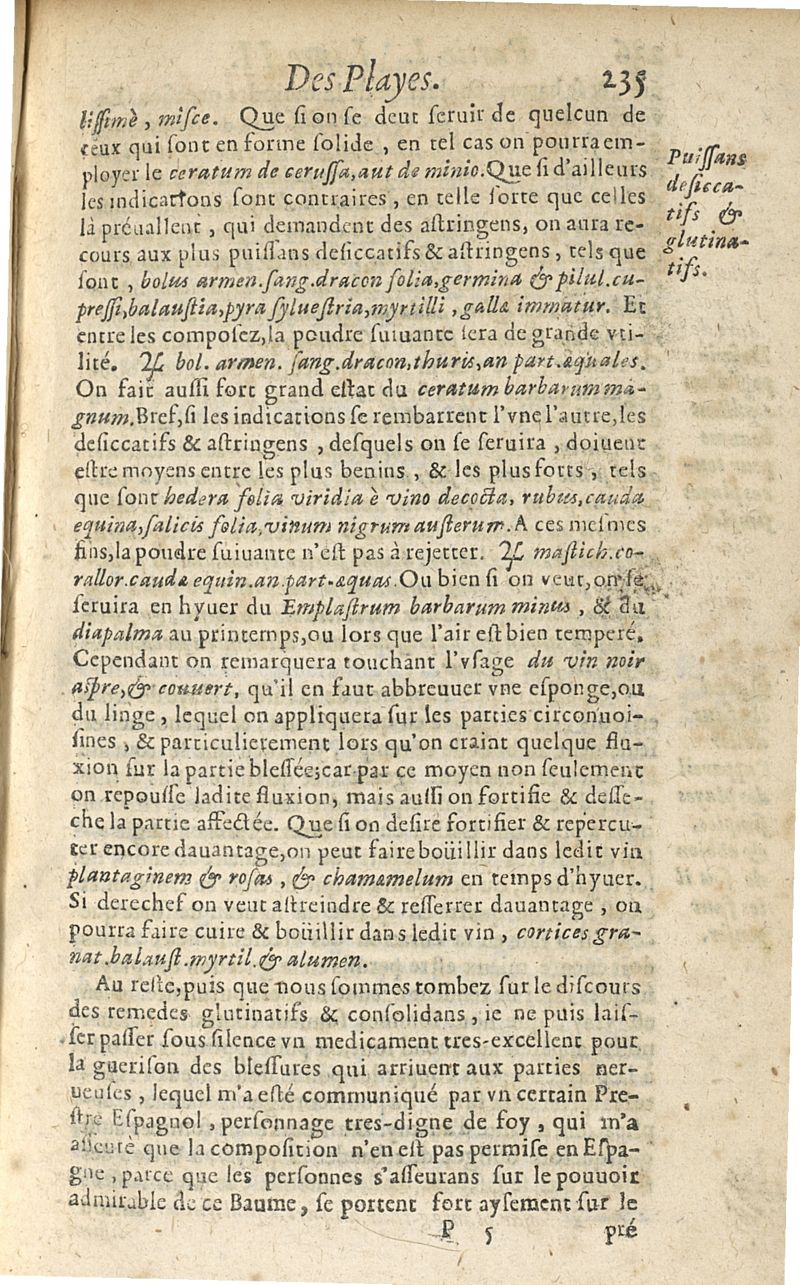 Des Playes. 235
lissimè, misce. Que si on se veut seruir de quelcun de
ceux qui sont en forme solide, en tel cas on pourra em-
ployer le ceratum de cerussa, aut de minio. Que si d'ailleurs
les indications sont contraires, en telle sorte que celles
là préuallent, qui demandent des astringens, on aura re-
cours aux plus puissans desiccatifs & astringens, tels que
sont, bolus armen. sang. dracon folia, germina & pilul. cu-
pressi, balaustia, pyra syluestria, myrtilli, galla immatur. Et
entre les composez, la poudre suiuante sera de grande vti-
lité. ℞ bol. armen. sang. dracon, thuris, an part. æquales.
On fait aussi fort grand estat du ceratum barbarum ma-
gnum. Bref, si les indications se rembarrent l'vne l'autre, les
desiccatifs & astringens, desquels on se seruira, doiuent
estre moyens entre les plus benins, & les plus forts, tels
que sont hedera folia viridia è vino decocta, rubus, cauda
equina, salicis folia, vinum nigrum austerum. A ces mesmes
fins, la poudre suiuante n'est pas à rejetter. ℞ mastich. co-
rallor. caudæ equin. an. part. æquas. Ou bien si on veut, on se
seruira en hyuer du Emplastrum barbarum minus, & du
diapalma au printemps, ou lors que l'air est bien temperé.
Cependant on remarquera touchant l'vsage du vin noir
aspre, & couuert, qu'il en faut abbreuuer vne esponge, ou
du linge, lequel on appliquera sur les parties circonuoi-
sines, & particulierement lors qu'on craint quelque flu-
xion sur la partie blessée; car par ce moyen non seulement
on repousse ladite fluxion, mais aussi on fortifie & desse-
che la partie affectée. Que si on desire fortifier & repercu-
ter encore dauantage, on peut faire boüillir dans ledit vin
plantaginem & rosas, & chamæmelum en temps d'hyuer.
Si derechef on veut astreindre & resserrer dauantage, on
pourra faire cuire & boüillir dans ledit vin, cortices gra-
nat. balaust. myrtil. & alumen.
Au reste, puis que nous sommes tombez sur le discours
des remedes glutinatifs & consolidans, ie ne puis lais-
ser passer sous silence vn medicament tres-excellent pour
la guerison des blessures qui arriuent aux parties ner-
ueuses, lequel m'a esté communiqué par vn certain Pre-
stre Espagnol, personnage tres-digne de foy, qui m'a
asseuré que la composition n'en est pas permise en Espa-
gne, parce que les personnes s'asseurans sur le pouuoir
admirable de ce Baume, se portent fort aysement sur le
P 5 pré
Puissans
desicca-
tifs &
glutina-
tifs.